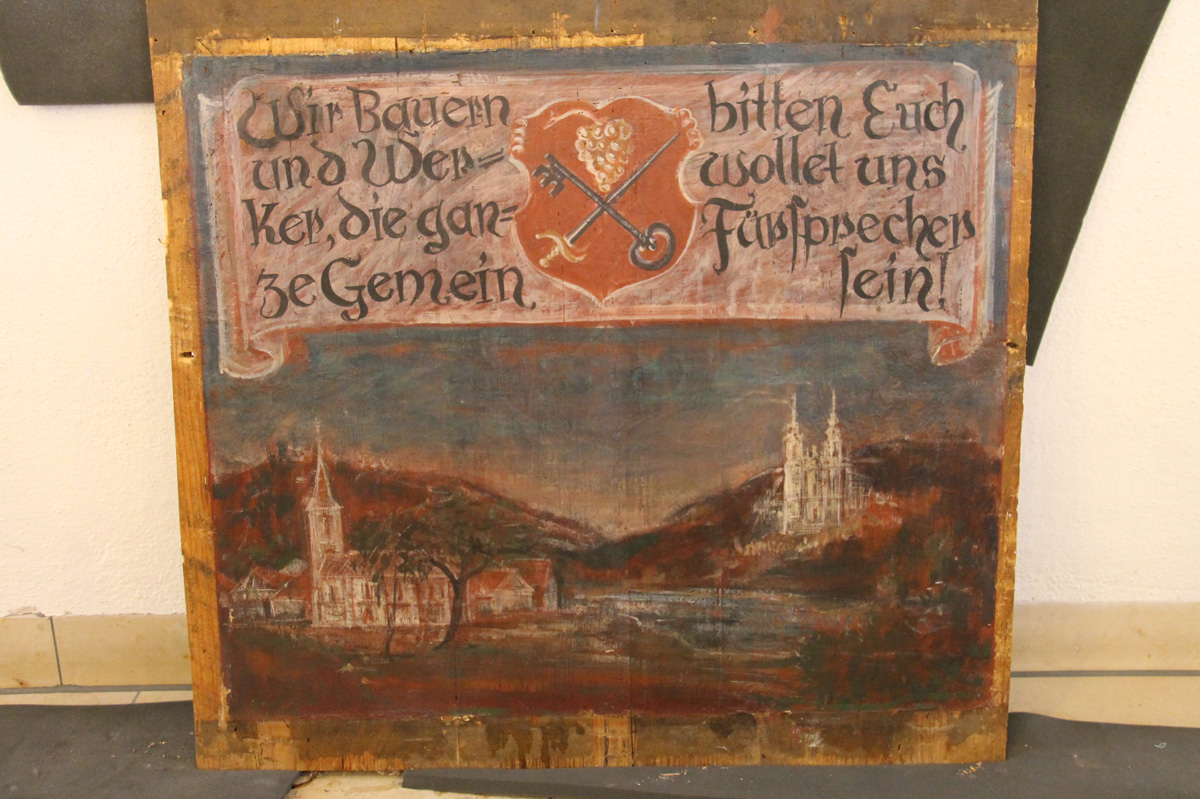 Wir Bauern
und Wer=
ker, die gan=
ze Gemein
bitten Euch
wollet uns
Fürsprecher
sein!